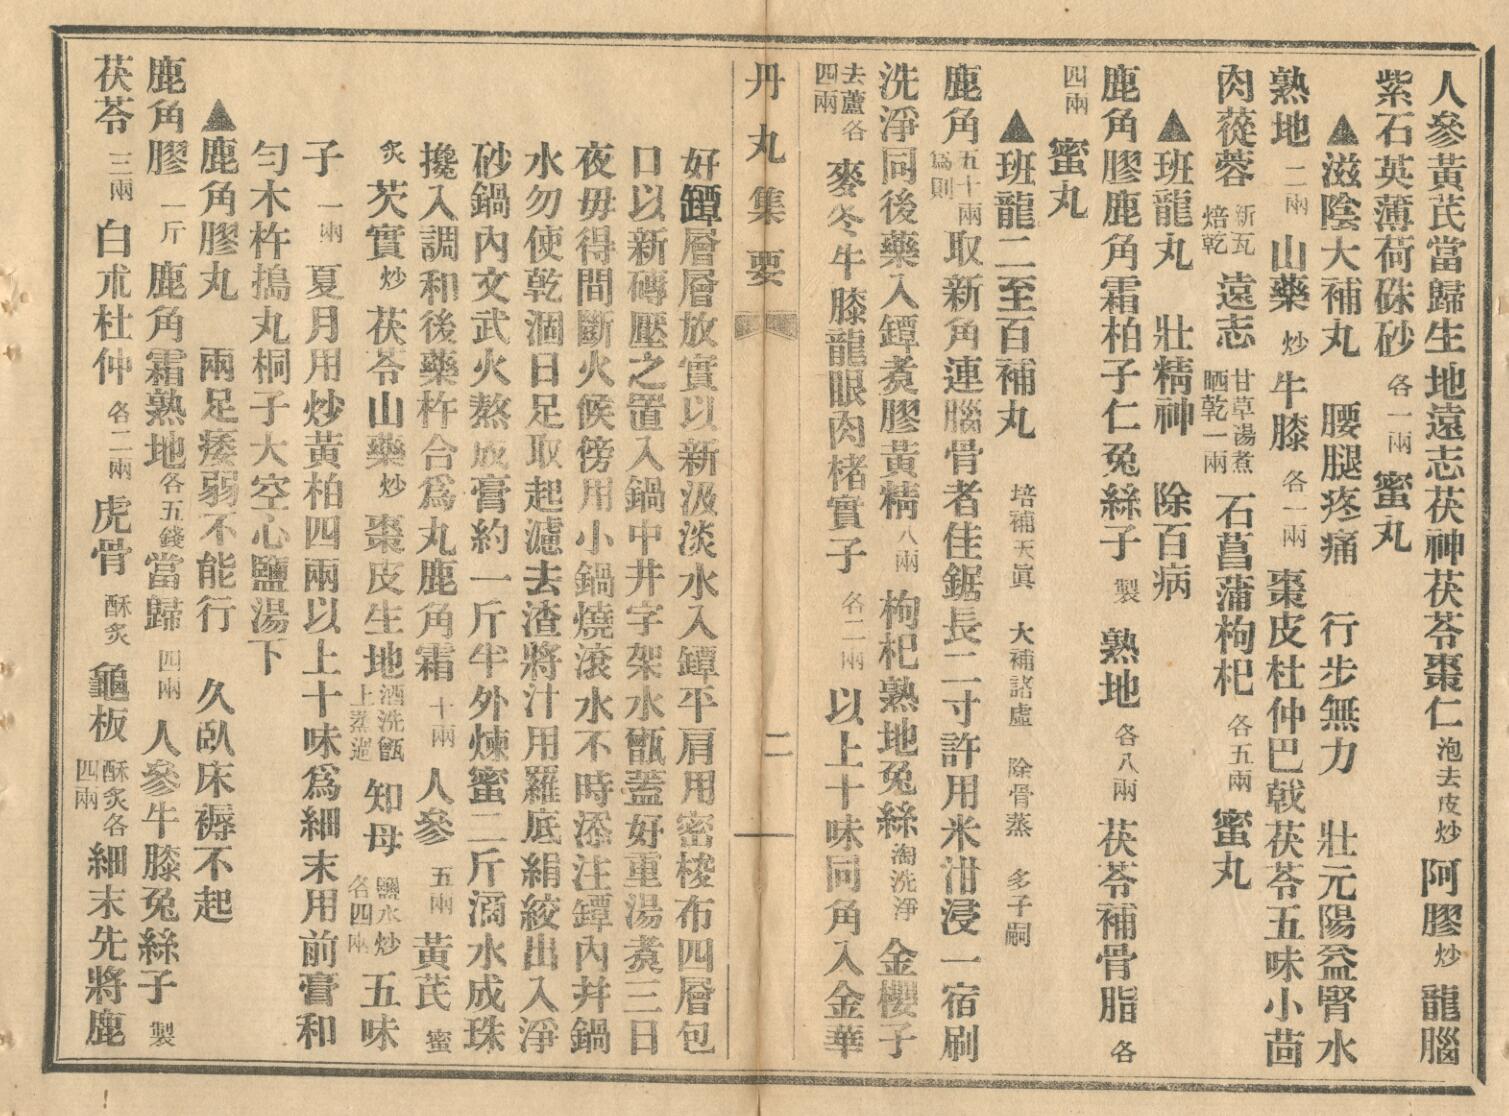 人參黃芪當歸生地遠志茯神茯苓棗仁泡去皮炒阿膠炒龍腦
紫石英薄荷硃砂各一兩蜜丸
▲滋陰大補丸 腰腿疼痛 行步無力 壯元陽益腎水
熟地二兩山藥炒牛膝各一兩棗皮杜仲巴戟茯苓五味小茴
肉蓯蓉新瓦焙乾遠志甘草湯煮晒乾一兩石菖蒲枸杞各五兩蜜丸
▲班龍丸 壯精神 除百病
鹿角膠鹿角霜柏子仁兔絲子製熟地各八兩茯苓補骨脂各
四兩蜜丸
▲班龍二至百補丸 培補天眞 大補諸虛 除骨蒸 多子嗣
鹿角五十兩爲則取新角連腦骨者佳鋸長二寸許用米泔浸一宿刷
洗淨同後藥入罈煮膠黃精八兩枸杞熟地兔絲淘洗淨金櫻子
去蘆各四兩麥冬牛膝龍眼肉楮實子各二兩以上十味同角入金華
丹丸集要 二
好罈層層放實以新汲淡水入罈平肩用密梭布四層包
口以新磚壓之置入鍋中井字架水甑蓋好重湯煮三日
夜毋得間斷火候傍用小鍋燒滾水不時添注罈內幷鍋
水勿使乾涸日足取起濾去渣將汁用羅底絹絞出入淨
砂鍋內文武火熬成膏約一斤半外煉蜜二斤滴水成珠
攙入調和後藥杵合爲丸鹿角霜十兩人參五兩黃芪蜜
炙芡實炒茯苓山藥炒棗皮生地酒洗甑上蒸過知母鹽水炒各四兩五味
子一兩夏月用炒黃柏四兩以上十味爲細末用前膏和
勻木杵搗丸桐子大空心鹽湯下
▲鹿角膠丸 兩足痿弱不能行 久臥床褥不起
鹿角膠一斤鹿角霜熟地各五錢當歸四兩人參牛膝兔絲子製
茯苓三兩白朮杜仲各二兩虎骨酥炙龜板酥炙各四兩細末先將鹿